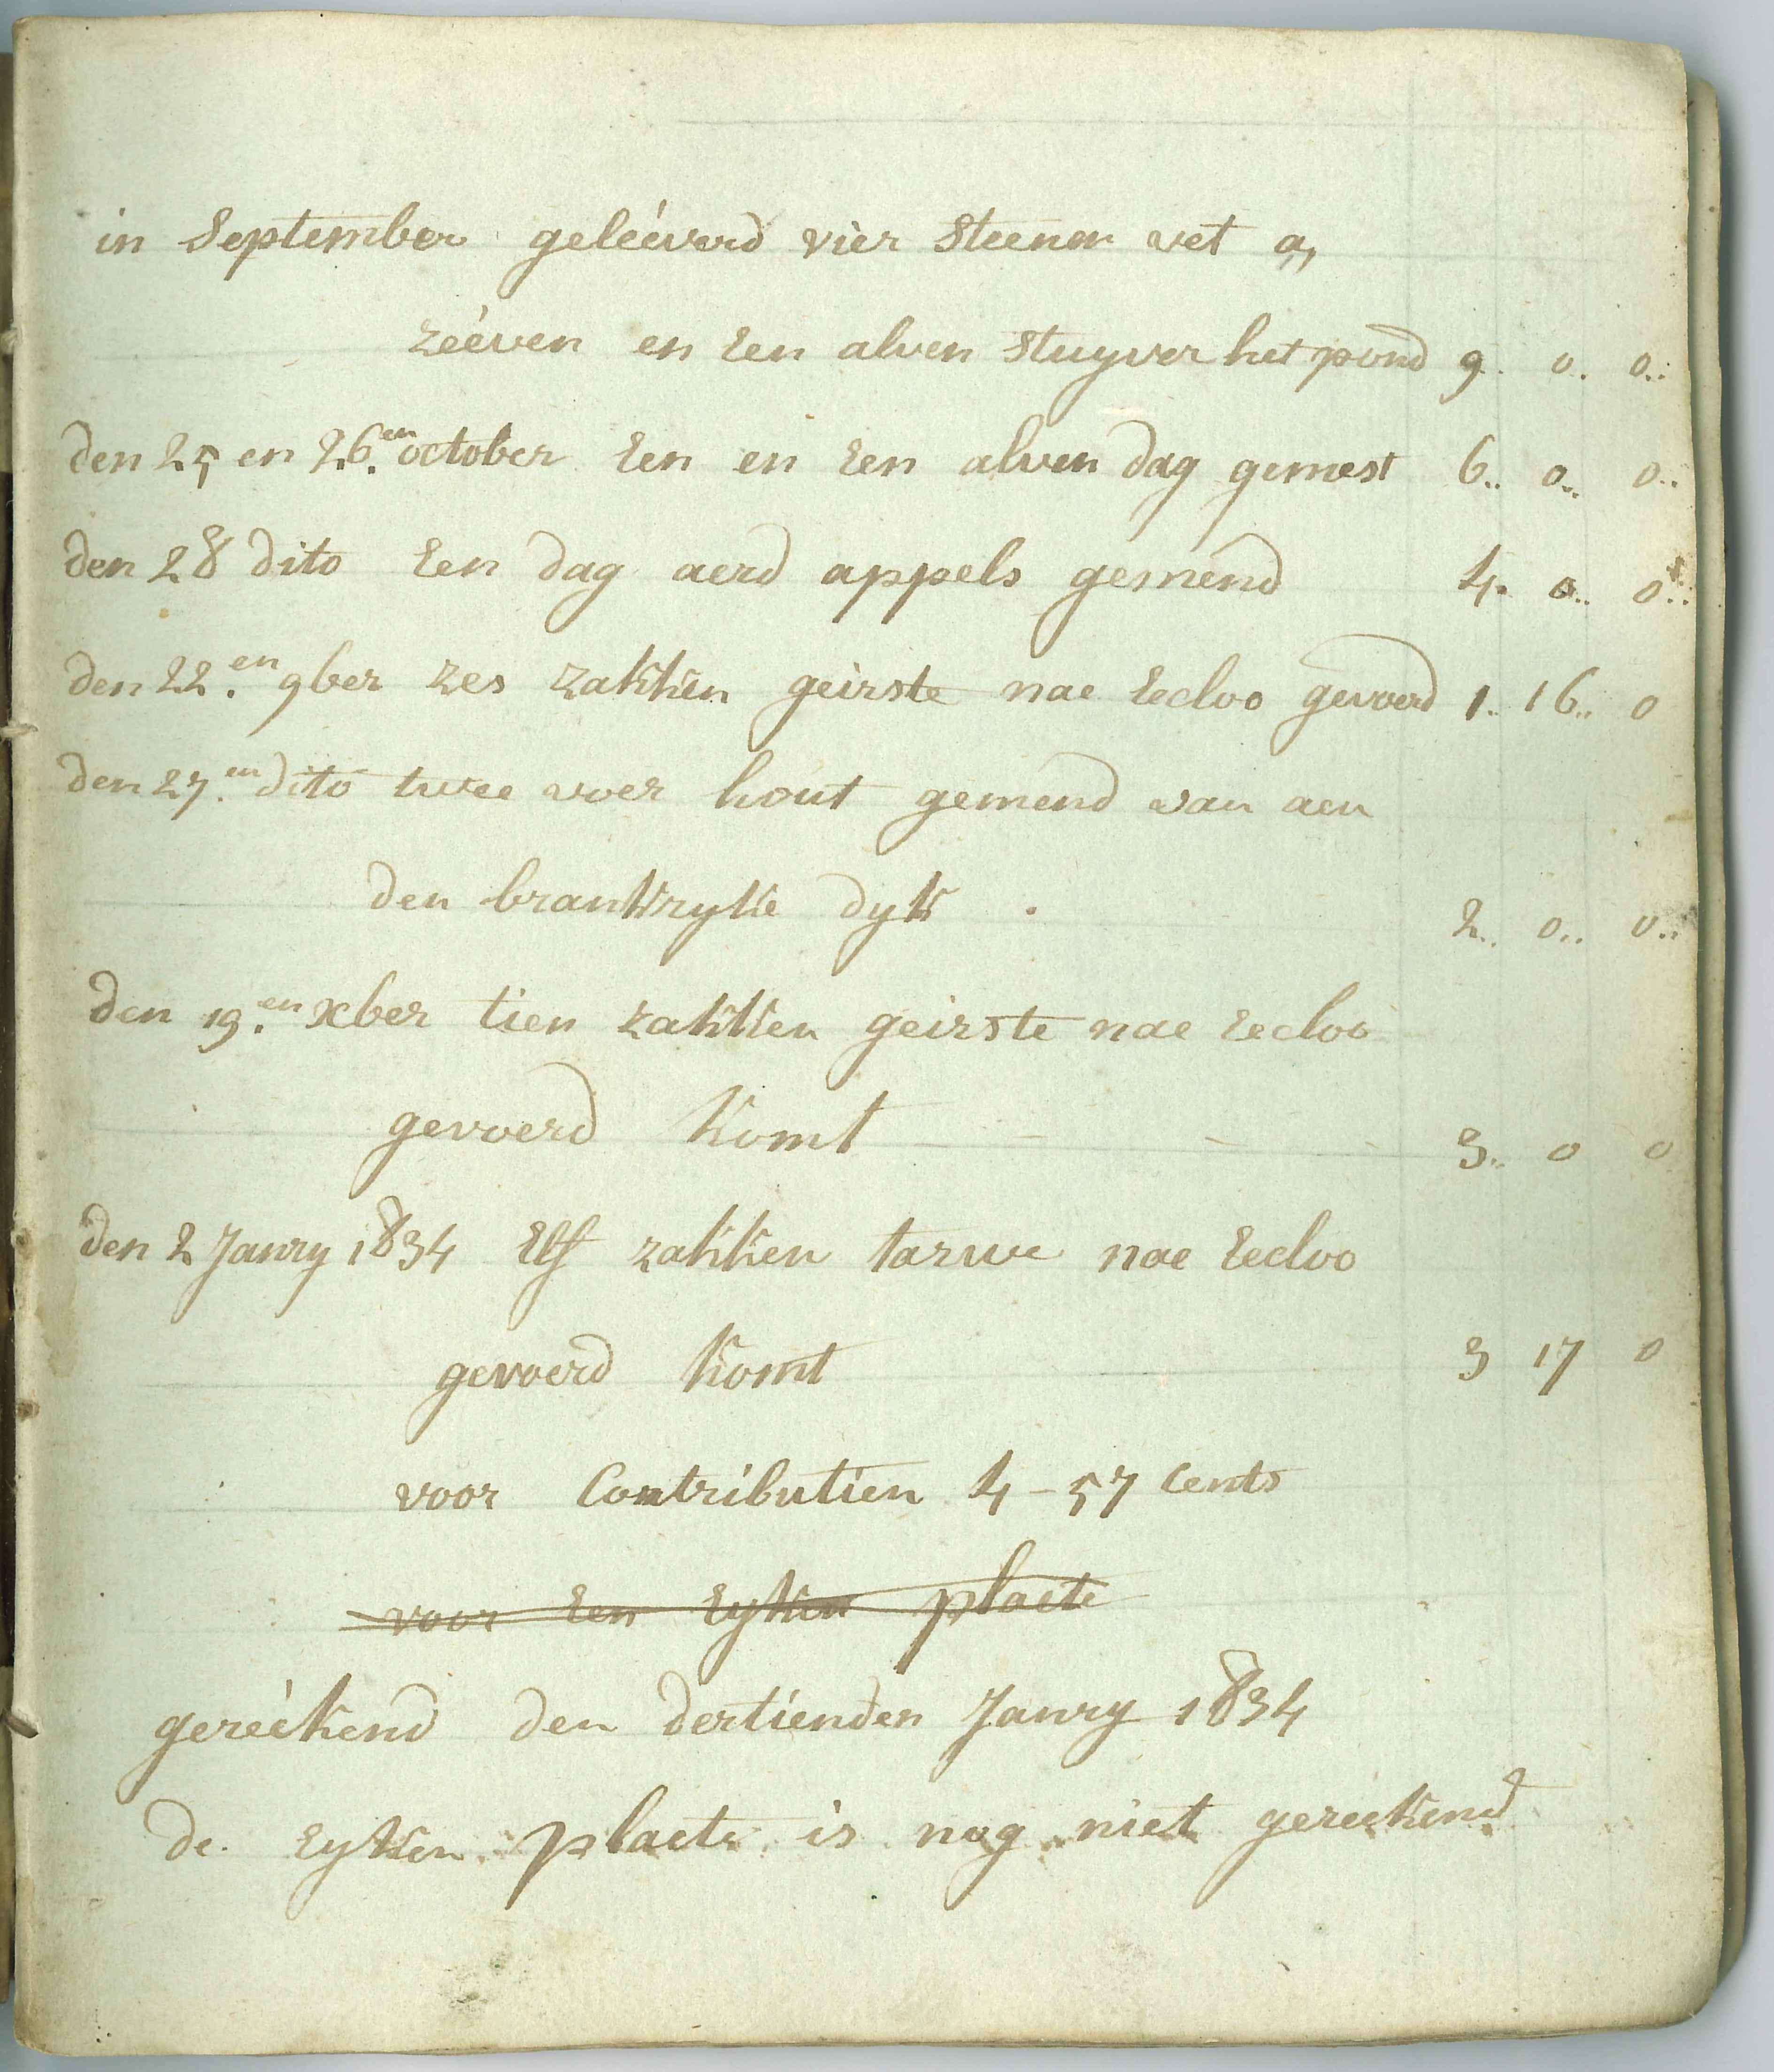 in September geléeverd vier Steenen vet a,,
zéeven en Een alven Stuyver het pond 9.. 0.. 0..
den 25 en 26.en october Een en Een alven dag gemest 6.. 0.. 0..
den 28 dito Een dag aerd appels gemend 4.. 0.. 0..
den 22.en 9ber zes zakken geirste nae Eecloo gevoerd 1.. 16.. 0
den 27.en dito twee voer hout gemend van aen
den brankryke dyk 2.. 0.. 0..
den 19.en xber tien zakken geirste nae Eecloo
gevoerd komt - - - 3.. 0 0
den 2 Janry 1834 Elf zakken tarwe nae Eecloo
gevoerd komt 3 17 0
voor Contributien 4 - 57 Cents
voor Een Eyken plaete
geréekend den dertienden Janry 1834
de Eyken plaete is nog niet gereekend